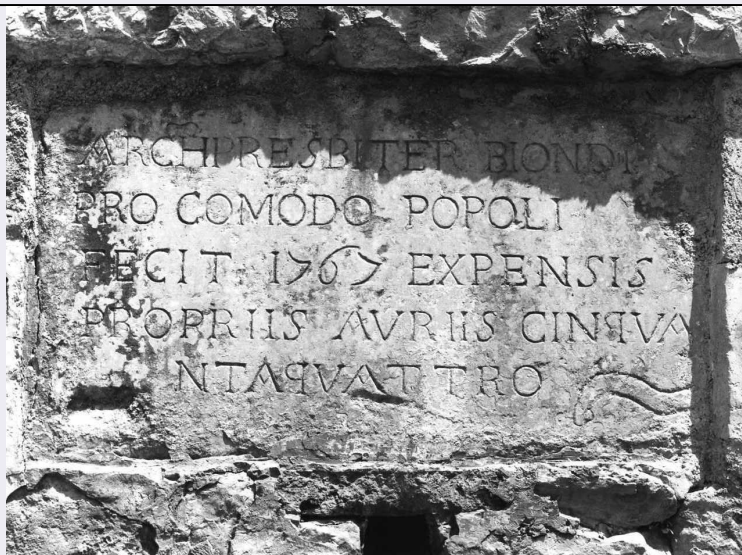 ARCHPRESBITER BIONDI
PRO COMODO POPOLI
FECIT 1767 EXPENSIS
PROPRIIS AVRIIS CINQVA
NTAQVATTRO